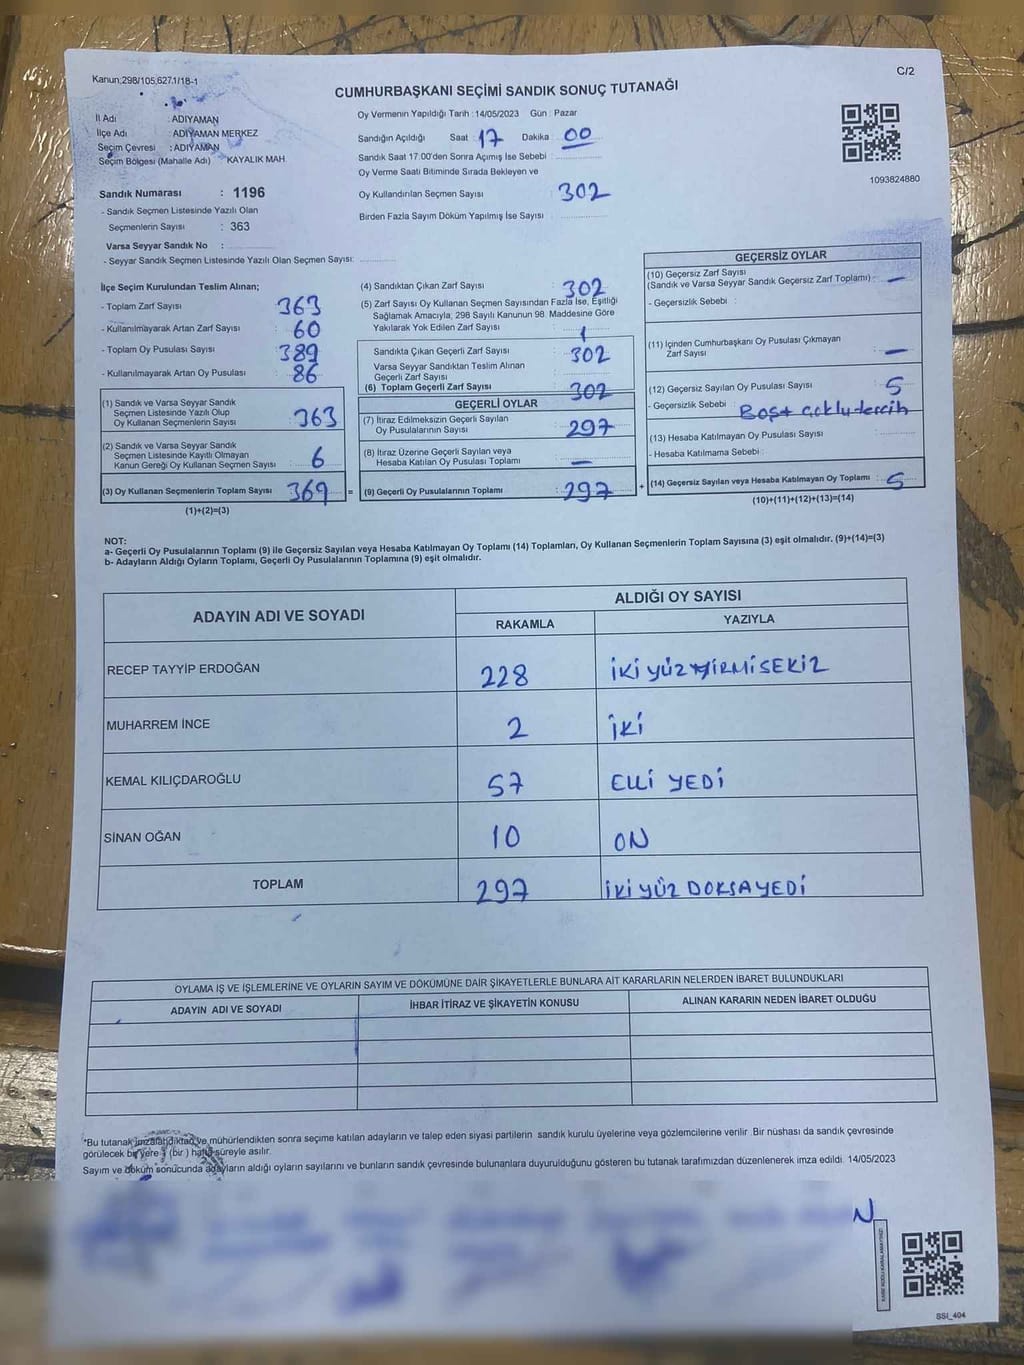 Kanun;298/105,627.1/18-1
C/2
CUMHURBAŞKANI SEÇİMİ SANDIK SONUÇ TUTANAĞI
İl Adı : ADIYAMAN
İlçe Adı : ADIYAMAN MERKEZ
Seçim Çevresi : ADIYAMAN
Seçim Bölgesi (Mahalle Adı) KAYALIK MAH
Sandık Numarası : 1196
- Sandık Seçmen Listesinde Yazılı Olan
Seçmenlerin Sayısı : 363
Varsa Seyyar Sandık No :
- Seyyar Sandık Seçmen Listesinde Yazılı Olan Seçmen Sayısı:
Oy Vermenin Yapıldığı Tarih : 14/05/2023 Gün : Pazar
Sandığın Açıldığı Saat : 17 Dakika : 00
Sandık Saat 17.00'den Sonra Açımış İse Sebebi :
Oy Verme Saati Bitiminde Sırada Bekleyen ve
Oy Kullandırılan Seçmen Sayısı : 302
Birden Fazla Sayım Döküm Yapılmış İse Sayısı :
1093824880
İlçe Seçim Kurulundan Teslim Alınan;
- Toplam Zarf Sayısı : 363
- Kullanılmayarak Artan Zarf Sayısı : 60
- Toplam Oy Pusulası Sayısı : 389
- Kullanılmayarak Artan Oy Pusulası : 86
(1) Sandık ve Varsa Seyyar Sandık
Seçmen Listesinde Yazılı Olup
Oy Kullanan Seçmenlerin Sayısı : 363
(2) Sandık ve Varsa Seyyar Sandık
Seçmen Listesinde Kayıtlı Olmayan
Kanun Gereği Oy Kullanan Seçmen Sayısı : 6
(3) Oy Kullanan Seçmenlerin Toplam Sayısı : 369 =
(1)+(2)=(3)
(4) Sandıktan Çıkan Zarf Sayısı : 302
(5) Zarf Sayısı Oy Kullanan Seçmen Sayısından Fazla İse, Eşitliği
Sağlamak Amacıyla, 298 Sayılı Kanunun 98. Maddesine Göre
Yakılarak Yok Edilen Zarf Sayısı : 1
Sandıkta Çıkan Geçerli Zarf Sayısı : 302
Varsa Seyyar Sandıktan Teslim Alınan
Geçerli Zarf Sayısı :
(6) Toplam Geçerli Zarf Sayısı : 302
GEÇERLİ OYLAR
(7) İtiraz Edilmeksizin Geçerli Sayılan
Oy Pusulalarının Sayısı : 297
(8) İtiraz Üzerine Geçerli Sayılan veya
Hesaba Katılan Oy Pusulası Toplamı : —
(9) Geçerli Oy Pusulalarının Toplamı : 297 +
GEÇERSİZ OYLAR
(10) Geçersiz Zarf Sayısı
(Sandık ve Varsa Seyyar Sandık Geçersiz Zarf Toplamı) : —
- Geçersizlik Sebebi :
(11) İçinden Cumhurbaşkanı Oy Pusulası Çıkmayan
Zarf Sayısı : —
(12) Geçersiz Sayılan Oy Pusulası Sayısı : 5
- Geçersizlik Sebebi : Boş+ çoklu tercih
(13) Hesaba Katılmayan Oy Pusulası Sayısı :
- Hesaba Katılmama Sebebi :
(14) Geçersiz Sayılan veya Hesaba Katılmayan Oy Toplamı : 5
(10)+(11)+(12)+(13)=(14)
NOT:
a- Geçerli Oy Pusulalarının Toplamı (9) ile Geçersiz Sayılan veya Hesaba Katılmayan Oy Toplamı (14) Toplamları, Oy Kullanan Seçmenlerin Toplam Sayısına (3) eşit olmalıdır. (9)+(14)=(3)
b- Adayların Aldığı Oyların Toplamı, Geçerli Oy Pusulalarının Toplamına (9) eşit olmalıdır.
ADAYIN ADI VE SOYADI
ALDIĞI OY SAYISI
RAKAMLA YAZIYLA
RECEP TAYYİP ERDOĞAN 228 İKİ YÜZ YİRMİSEKİZ
MUHARREM İNCE 2 İKİ
KEMAL KILIÇDAROĞLU 57 ELLİ YEDİ
SİNAN OĞAN 10 ON
TOPLAM 297 İKİ YÜZ DOKSAYEDİ
OYLAMA İŞ VE İŞLEMLERİNE VE OYLARIN SAYIM VE DÖKÜMÜNE DAİR ŞİKAYETLERLE BUNLARA AİT KARARLARIN NELERDEN İBARET BULUNDUKLARI
ADAYIN ADI VE SOYADI İHBAR İTİRAZ VE ŞİKAYETİN KONUSU ALINAN KARARIN NEDEN İBARET OLDUĞU
*Bu tutanak imzalandıktan ve mühürlendikten sonra seçime katılan adayların ve talep eden siyasi partilerin sandık kurulu üyelerine veya gözlemcilerine verilir. Bir nüshası da sandık çevresinde
görülecek bir yere 1 (bir ) hafta süreyle asılır.
Sayım ve döküm sonucunda adayların aldığı oyların sayılarını ve bunların sandık çevresinde bulunanlara duyurulduğunu gösteren bu tutanak tarafımızdan düzenlenerek imza edildi. 14/05/2023
N
SSI_404